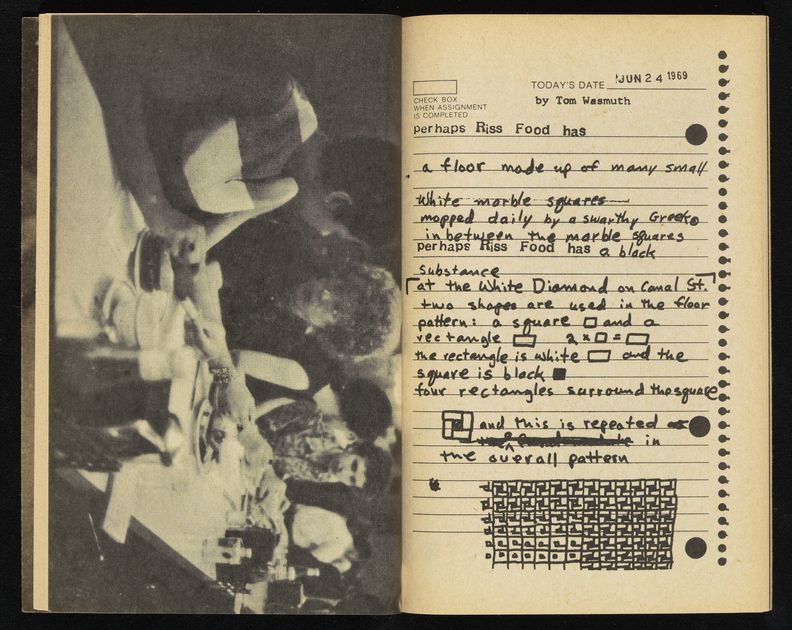 TODAY'S DATE JUN 24 1969
CHECK BOX
WHEN ASSIGNMENT
IS COMPLETED
by Tom Wasmuth
perhaps Riss Food has
a floor made up of many small
white marble squares
mopped daily by a swarthy Greek.
in between the marble squares
perhaps Riss Food has a black
substance
at the White Diamond on Canal St.
two shapes are used in the floor
pattern: a square and a
rectangle 2 x =
the rectangle is white and the
square is black
four rectangles surround the square
and this is repeated
in
the overall pattern